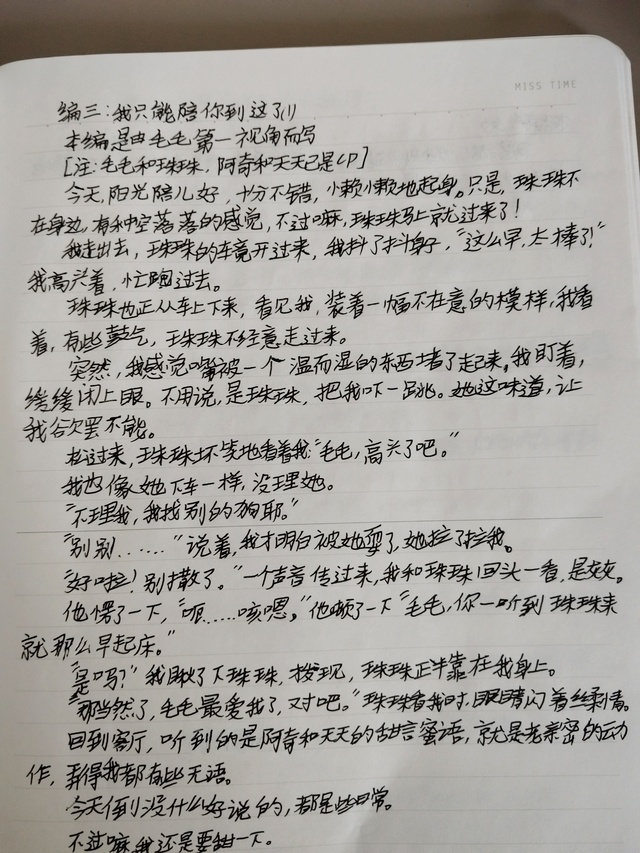 MISS TIME
编三:我只能陪你到这了(1)
本编是由毛毛第一视角而写
[注:毛毛和珠珠,阿奇和天天已是CP]
今天,阳光陪儿好,十分不错,小懒小懒地起身。只是,珠珠不
在身边,有种空落落的感觉,不过嘛,珠珠马上就过来了!
我走出去,珠珠的车竟开过来,我抖了抖身子,“这么早,太棒了!”
我高兴着,忙跑过去。
珠珠也正从车上下来,看见我,装着一幅不在意的模样,我看
着,有些鼓气,珠珠不经意走过来。
突然,我感觉嘴被一个温而湿的东西堵了起来,我盯着,
缓缓闭上眼。不用说,是珠珠,把我吓一跳。她这味道,让
我欲罢不能。
松过来,珠珠坏笑地看着我“毛毛,高兴了吧。”
我也像她下车一样,没理她。
“不理我,我找别的狗耶。”
“别别……”说着,我才明白被她耍了,她拉了拉我。
“好啦!别撒了。”一个声音传过来,我和珠珠回头一看,是灰灰。
他愣了一下,“呃……咳嗯。”他顿了一下“毛毛,你一听到珠珠来
就那么早起床。”
“是吗?”我瞅了下珠珠,发现,珠珠正半靠在我身上。
“那当然了,毛毛最爱我了,对吧。”珠珠看我时,眼睛闪着丝柔情。
回到客厅,听到的是阿奇和天天的甜言蜜语,就是老亲密的动
作,弄得我都有些无语。
今天倒没什么好说的,都是些日常。
不过嘛,我还是要甜一下。